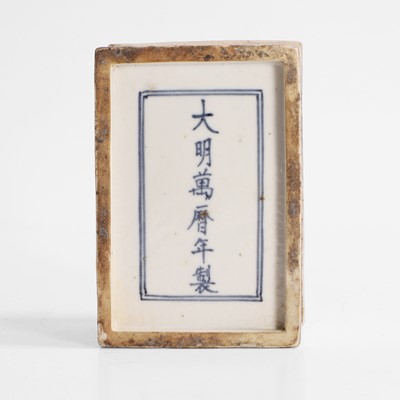 大明萬曆年製